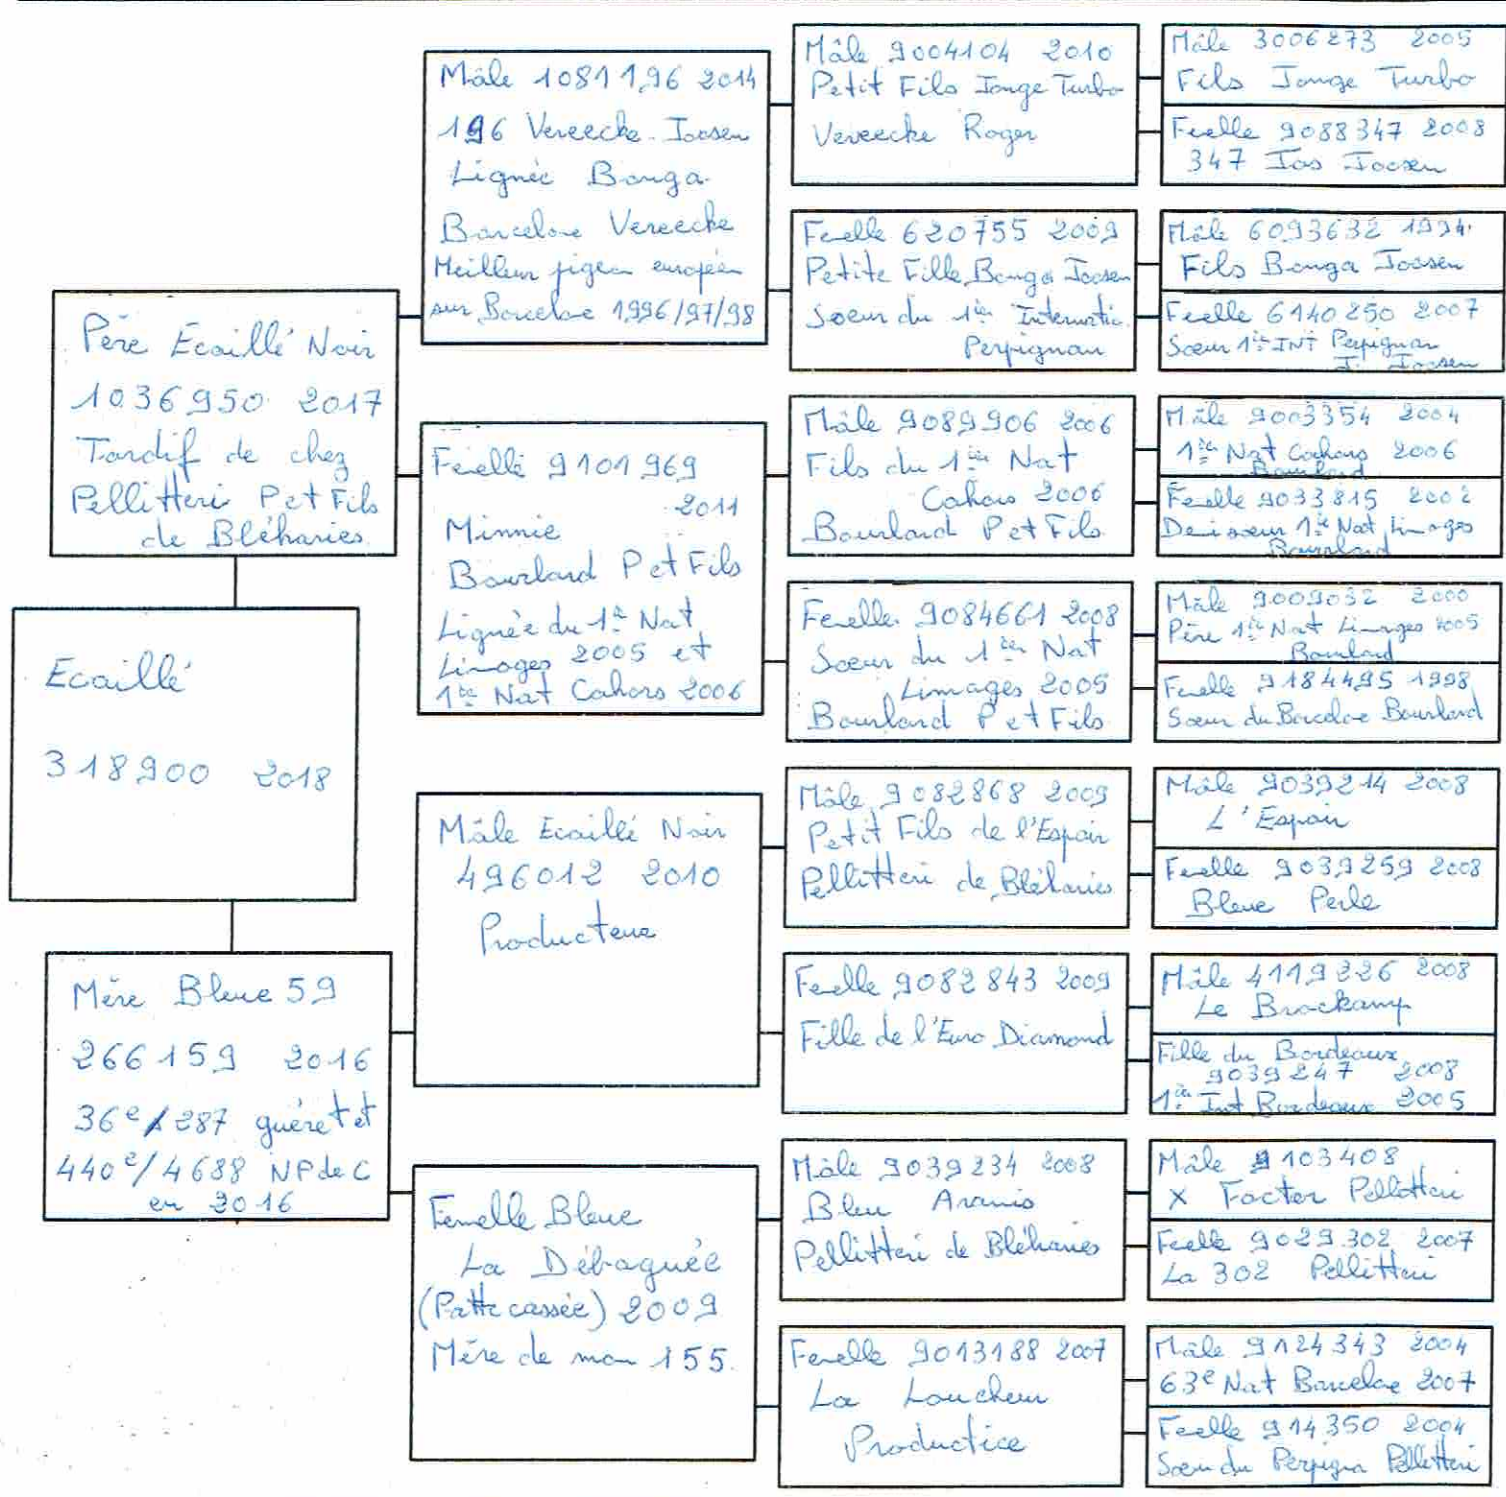 Ecaillé
318900 2018
Père Ecaillé Noir
1036950 2017
Tardif de chez
Pellitteri P et Fils
de Bléharies
Mère Bleue 59
266159 2016
36e/287 guéret et
440e/4688 NPdeC
en 2016
Mâle 1081196 2014
196 Vereecke-Joosen
Lignée Banga
Barcelone Vereecke
Meilleur pigeon européen
sur Barcelone 1996/97/98
Femelle 9101969
2011
Minnie
Bourlard P et Fils
Lignée du 1er Nat
Limoges 2005 et
1er Nat Cahors 2006
Mâle Ecaillé Noir
496012 2010
Producteur
Femelle Bleue
La Débaguée
(Patte cassée) 2009
Mère de mon 155
Mâle 9004104 2010
Petit Fils Jonge Turbo
Vereecke Roger
Femelle 620755 2009
Petite Fille Banga Joosen
Soeur du 1er Internatio.
Perpignan
Mâle 9089906 2006
Fils du 1er Nat
Cahors 2006
Bourlard P et Fils
Femelle 9084661 2008
Soeur du 1er Nat
Limoges 2005
Bourlard P et Fils
Mâle 9082868 2009
Petit Fils de l'Espoir
Pellitteri de Bléharies
Femelle 9082843 2009
Fille de l'Euro Diamond
Mâle 9039234 2008
Bleu Aramis
Pellitteri de Bléharies
Femelle 9013188 2007
La Loucheur
Productice
Mâle 3006273 2005
Fils Jonge Turbo
Femelle 9088347 2008
347 Jos Joosen
Mâle 6093632 1994
Fils Banga Joosen
Femelle 6140250 2007
Soeur 1er INT Perpignan
J. Joosen
Mâle 9003354 2004
1er Nat Cahors 2006
Bourlard
Femelle 9033815 2002
Demi soeur 1er Nat Limoges
Bourlard
Mâle 9009032 2000
Père 1er Nat Limoges 2005
Bourlard
Femelle 9184495 1998
Soeur du Barcelone Bourlard
Mâle 9039214 2008
L'Espoir
Femelle 9039259 2008
Bleue Perle
Mâle 4119226 2008
Le Brockamp
Fille du Bordeaux
9039247 2008
1er Int Bordeaux 2005
Mâle 9103408
X Factor Pellitteri
Femelle 9029302 2007
La 302 Pellitteri
Mâle 9124343 2004
63e Nat Barcelone 2007
Femelle 914350 2004
Soeur du Perpignan Pellitteri